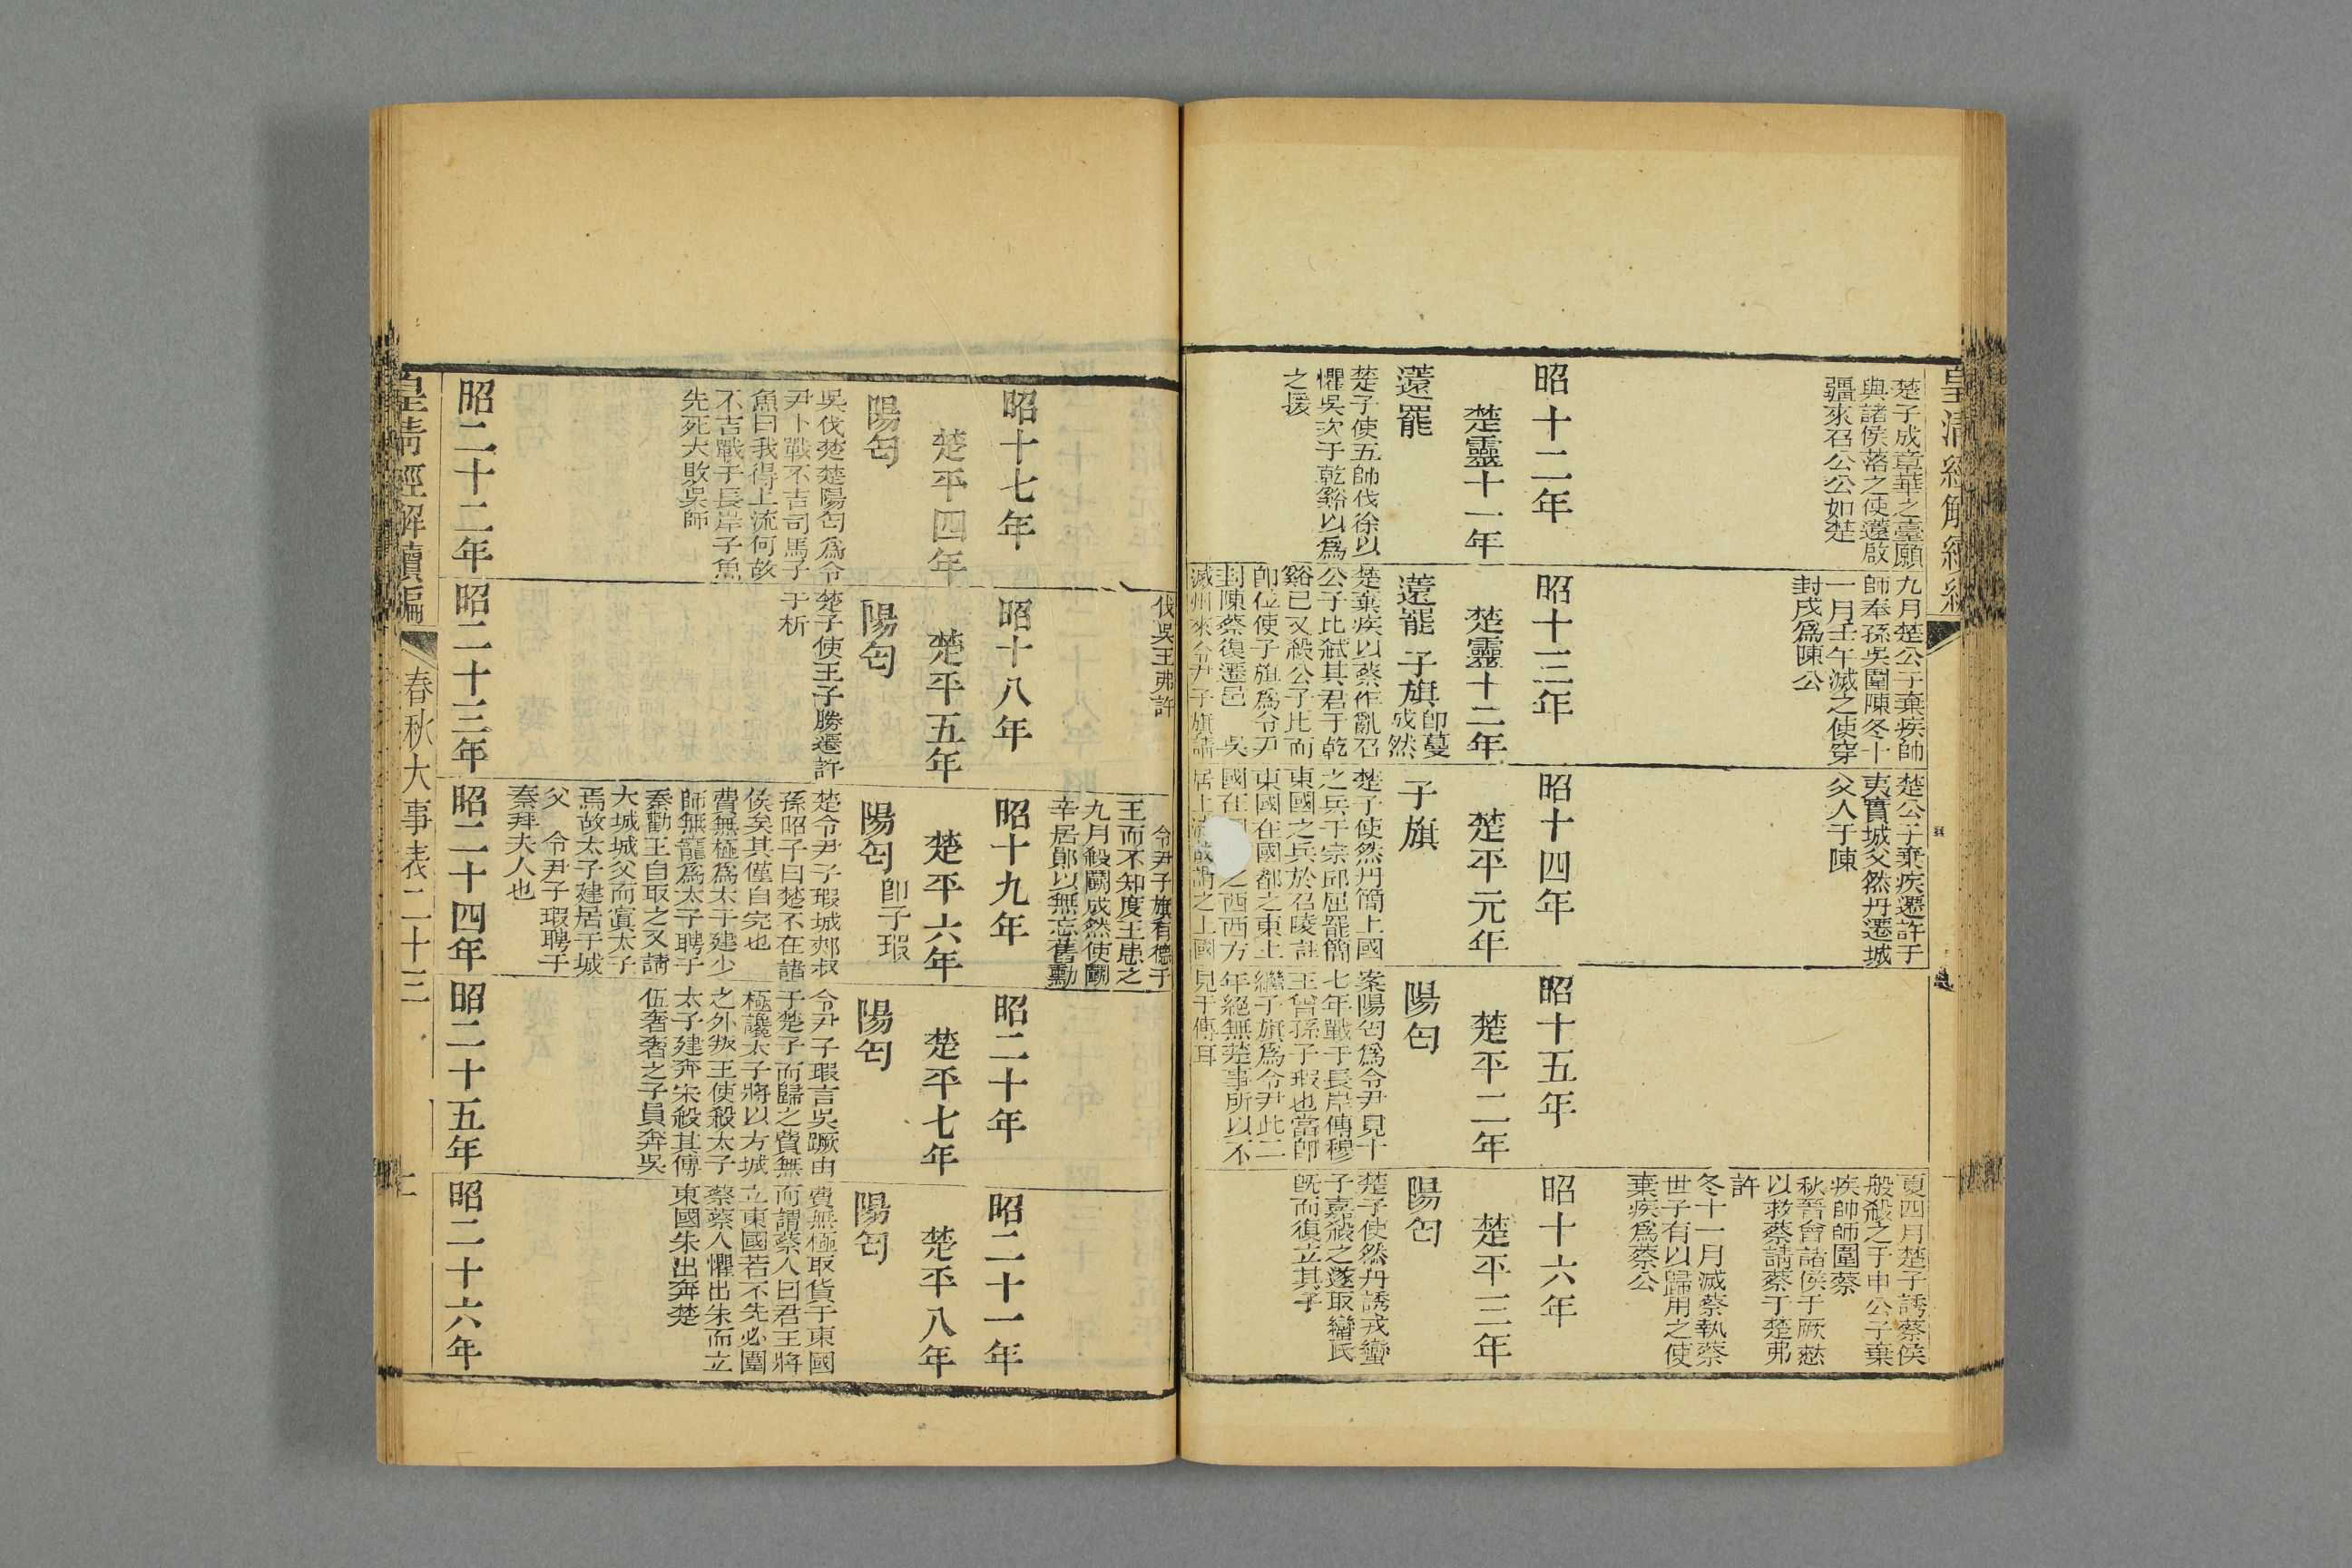 皇清經解續編
楚子成章華之臺願
與諸侯落之使薳啟
疆來召公公如楚
九月楚公子棄疾帥
師奉孫吳圍陳冬十
一月壬午滅之使穿
封戌爲陳公
楚公子棄疾遷許于
夷實城父然丹遷城
父人于陳
夏四月楚子誘蔡侯
般殺之于申公子棄
疾帥師圍蔡
秋晉會諸侯于厥憖
以救蔡請蔡于楚弗
許
冬十一月滅蔡執蔡
世子有以歸用之使
棄疾爲蔡公
昭十二年
昭十三年
昭十四年
昭十五年
昭十六年
楚靈十一年
楚靈十二年
楚平元年
楚平二年
楚平三年
薳罷
薳罷 子旗
卽蔓
成然
子旗
陽匄
陽匄
楚子使五帥伐徐以
懼吳次于乾谿以爲
之援
楚棄疾以蔡作亂召
公子比弒其君于乾
谿已又殺公子比而
卽位使子旗爲令尹
封陳蔡復遷邑 吳
滅州來令尹子旗請
楚子使然丹簡上國
之兵于宗邱屈罷簡
東國之兵於召陵註
東國在國都之東土
國在 之西西方
居上流故謂之上國
案陽匄爲令尹見十
七年戰于長岸傳穆
王曾孫子瑕也當卽
繼子旗爲令尹此二
年絕無楚事所以不
見于傳耳
楚子使然丹誘戎蠻
子嘉殺之遂取蠻氏
旣而復立其子
伐吳王弗許
令尹子旗有德于
王而不知度王患之
九月殺鬬成然使鬬
辛居鄖以無忘舊勳
昭十七年
昭十八年
昭十九年
昭二十年
昭二十一年
楚平四年
楚平五年
楚平六年
楚平七年
楚平八年
陽匄
陽匄
陽匄 卽子瑕
陽匄
陽匄
吳伐楚楚陽匄爲令
尹卜戰不吉司馬子
魚曰我得上流何故
不吉戰于長岸子魚
先死大敗吳師
楚子使王子勝遷許
于析
楚令尹子瑕城郟叔
孫昭子曰楚不在諸
侯矣其僅自完也
費無極爲太子建少
師無寵爲太子聘于
秦勸王自取之又請
大城城父而寘太子
焉故太子建居于城
父 令尹子瑕聘于
秦拜夫人也
令尹子瑕言吳蹶由
于楚子而歸之費無
極讒太子將以方城
之外叛王使殺太子
太子建奔宋殺其傅
伍奢奢之子員奔吳
費無極取貨于東國
而謂蔡人曰君王將
立東國若不先必圍
蔡蔡人懼出朱而立
東國朱出奔楚
昭二十二年
昭二十三年
昭二十四年
昭二十五年
昭二十六年
皇清經解續編
春秋大事表二十三